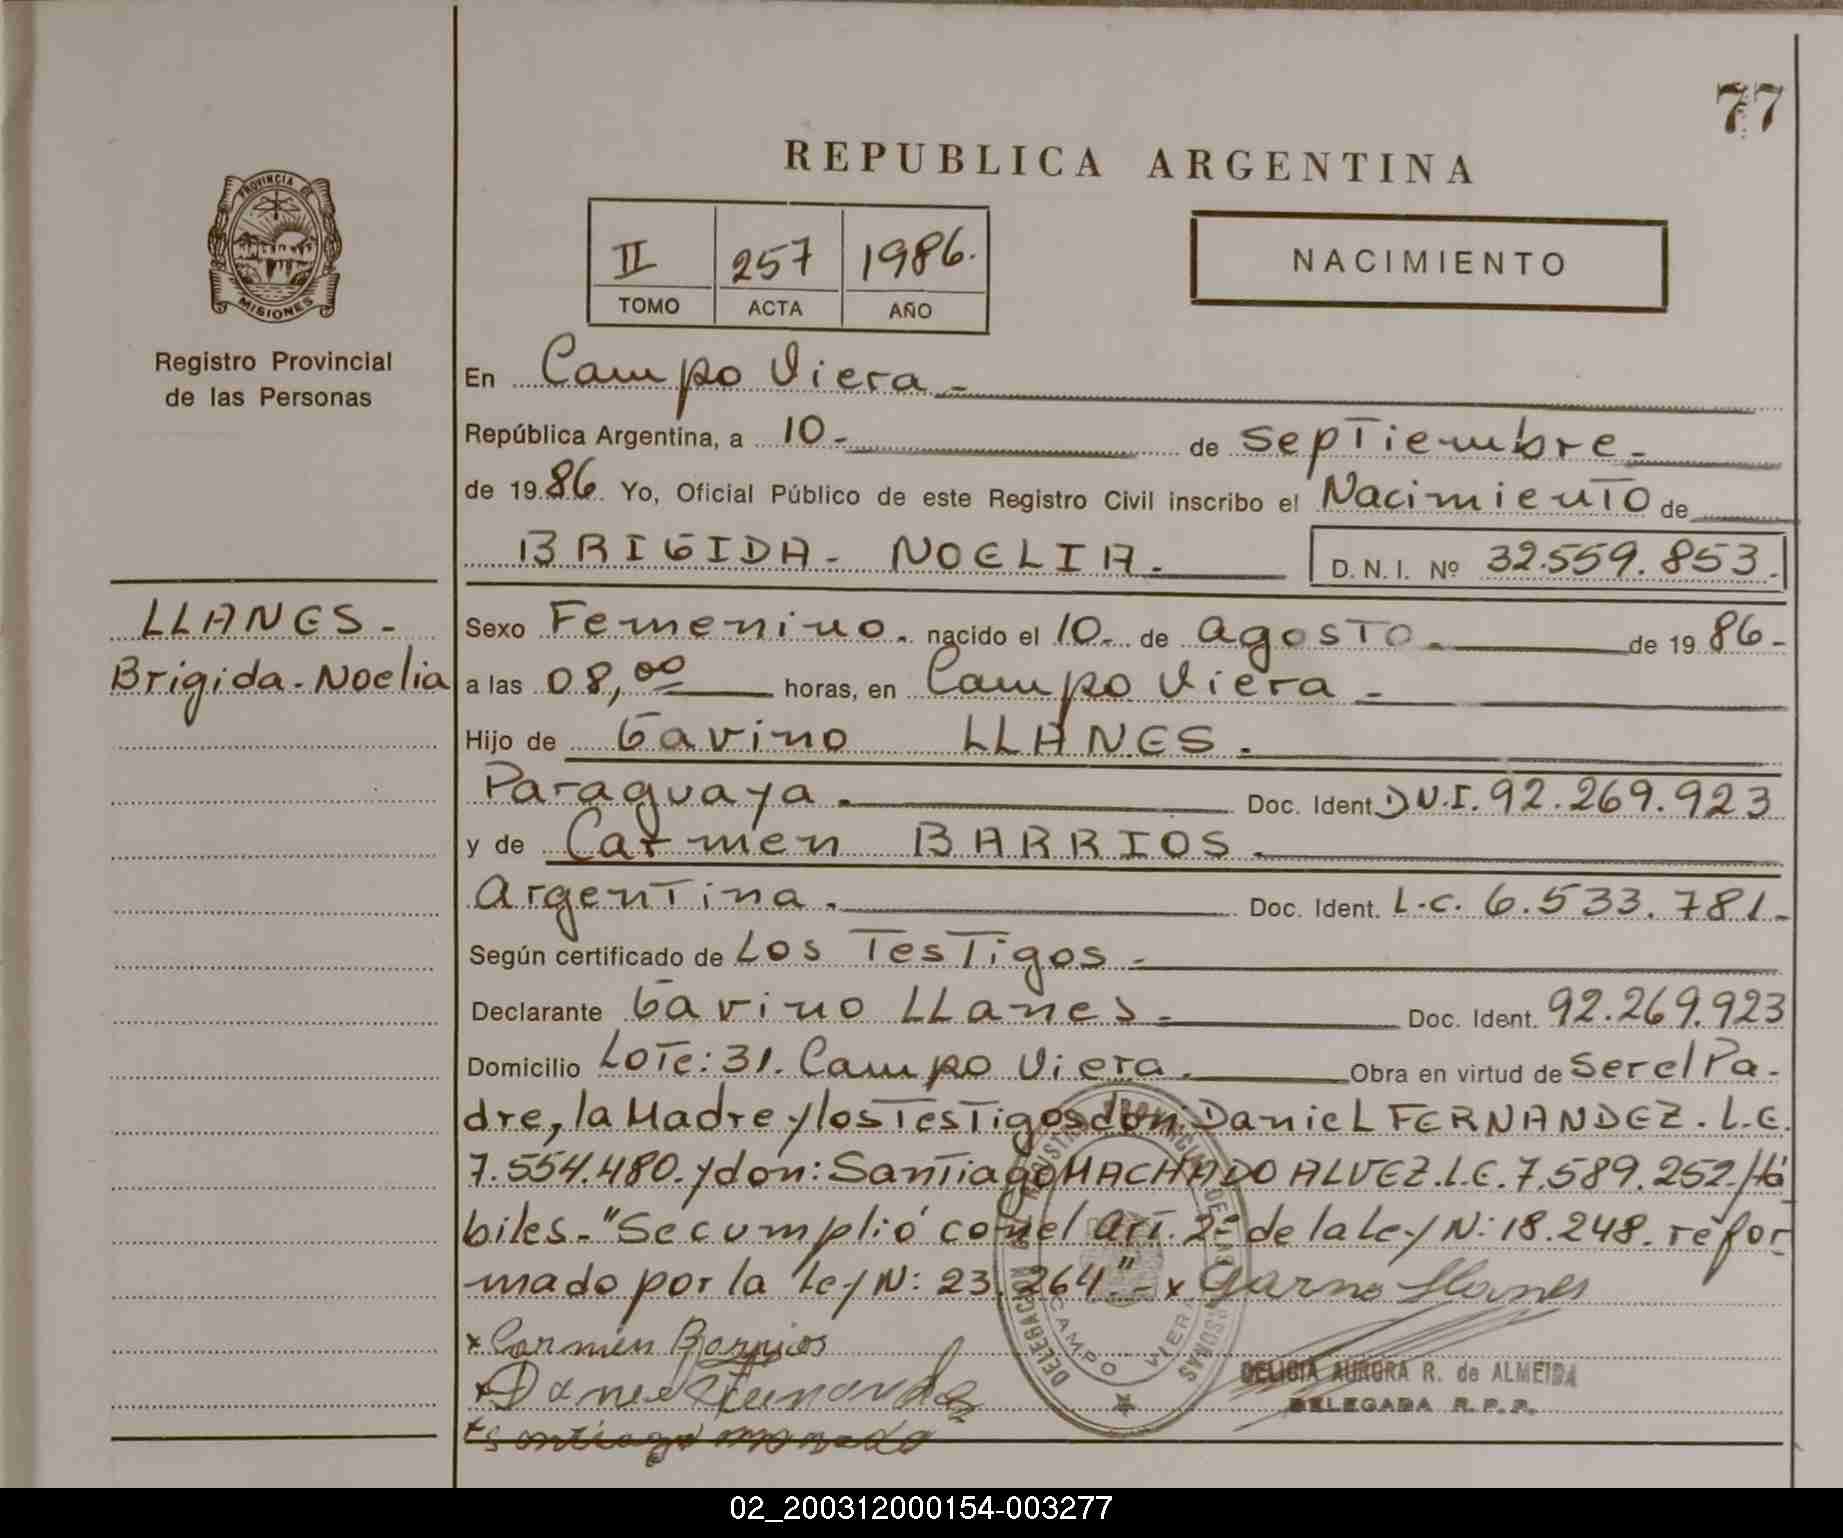 77
REPUBLICA ARGENTINA
PROVINCIA
MISIONES
II 257 1986.
TOMO ACTA AÑO
NACIMIENTO
Registro Provincial
de las Personas
En Campo Viera -
República Argentina, a 10 - de Septiembre -
de 1986. Yo, Oficial Público de este Registro Civil inscribo el Nacimiento de
BRIGIDA - NOELIA. D. N. I. Nº 32.559.853.
LLANES -
Brigida - Noelia
Sexo Femenino. nacido el 10 - de agosto. de 1986 -
a las 08,00 horas, en Campo Viera -
Hijo de Gavino LLANES.
Paraguaya. Doc. Ident. D.N.I. 92.269.923
y de Carmen BARRIOS.
Argentina. Doc. Ident. L.C. 6.533.781 -
Según certificado de Los Testigos -
Declarante Gavino LLanes - Doc. Ident. 92.269.923
Domicilio Lote: 31. Campo Viera. Obra en virtud de Ser el Pa-
dre, la Madre y los Testigos don: Daniel FERNANDEZ. L.E.
7.554.480. y don: Santiago MACHADO ALVEZ. L.E. 7.589.252./Há
biles - "Se cumplió con el Art. 2º de la Ley N: 18.248. refor
mado por la Ley N: 23.264." - x Llanes
x Carmen Barrios
x Daniel Fernandez
x Santiago
CAMPO VIERA
DELICIA AURORA R. de ALMEIDA
DELEGADA R. P. P.
02_200312000154-003277